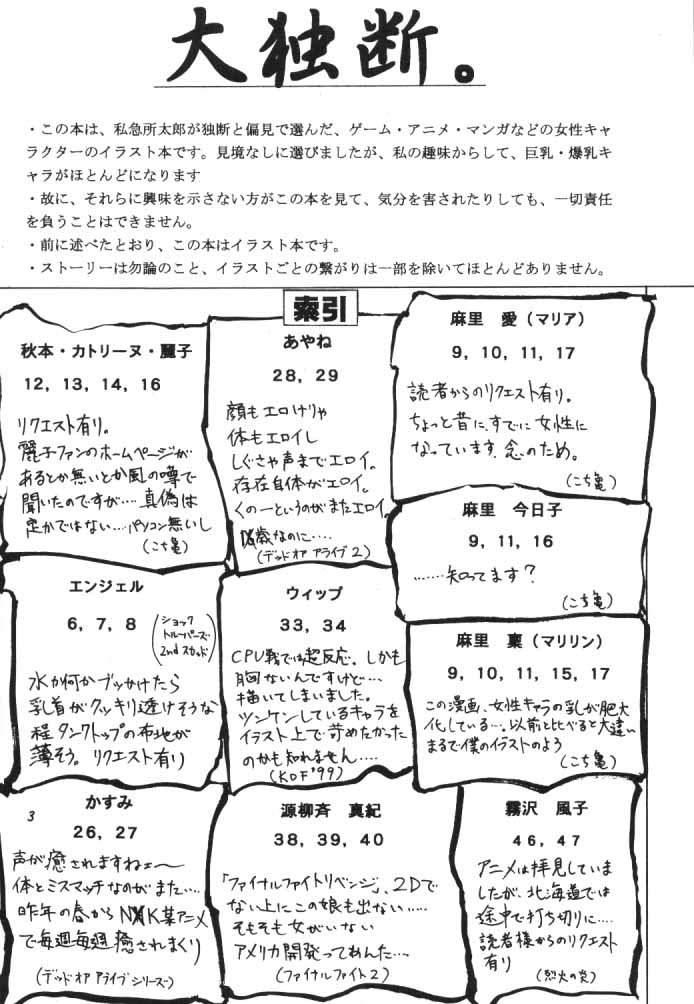 大独断。
・この本は、私急所太郎が独断と偏見で選んだ、ゲーム・アニメ・マンガなどの女性キャ
ラクターのイラスト本です。見境なしに選びましたが、私の趣味からして、巨乳・爆乳キ
ャラがほとんどになります
・故に、それらに興味を示さない方がこの本を見て、気分を害されたりしても、一切責任
を負うことはできません。
・前に述べたとおり、この本はイラスト本です。
・ストーリーは勿論のこと、イラストごとの繋がりは一部を除いてほとんどありません。
索引
秋本・カトリーヌ・麗子
12, 13, 14, 16
リクエスト有り。
麗子ファンのホームページが
あるとか無いとか風の噂で
聞いたのですが‥‥真偽は
定かではない‥‥パソコン無いし
(こち亀)
あやね
28, 29
顔もエロけりゃ
体もエロイし
しぐさや声までエロイ。
存在自体がエロイ。
くの一というのがまたエロイ。
歳なのに‥‥
(デッド オア アライブ 2)
麻里 愛(マリア)
9, 10, 11, 17
読者からのリクエスト有り。
ちょっと昔に、すでに女性に
なっています、念のため。
(こち亀)
麻里 今日子
9, 11, 16
‥‥‥知ってます?
(こち亀)
エンジェル
6, 7, 8
(ショック
トルーパーズ
2nd スカッド)
水か何かブッかけたら
乳首がクッキリ透けそうな
程タンクトップの布地が
薄そう。リクエスト有り
ウィップ
33, 34
CPU戦では超反応、しかも
胸ないんですけど‥‥
描いてしまいました。
ツンケンしているキャラを
イラスト上で苛めたかった
のかも知れません‥‥
(KOF '99)
麻里 稟(マリリン)
9, 10, 11, 15, 17
この漫画、女性キャラの乳が肥大
化している‥‥。以前と比べると大違い
まるで僕のイラストのよう
(こち亀)
3
かすみ
26, 27
声が癒されますねェ〜
体とミスマッチなのがまた‥‥
昨年の春からNHK某アニメ
で毎週毎週癒されまくり
(デッド オア アライブ シリーズ)
源柳斉 真紀
38, 39, 40
「ファイナルファイトリベンジ」、2Dで
ない上にこの娘も出ない‥‥‥
そもそも女がいない
アメリカ開発ってあんた‥‥
(ファイナルファイト2)
霧沢 風子
46, 47
アニメは拝見していま
したが、北海道では
途中で打ち切りに‥‥
読者様からのリクエスト
有り
(烈火の炎)